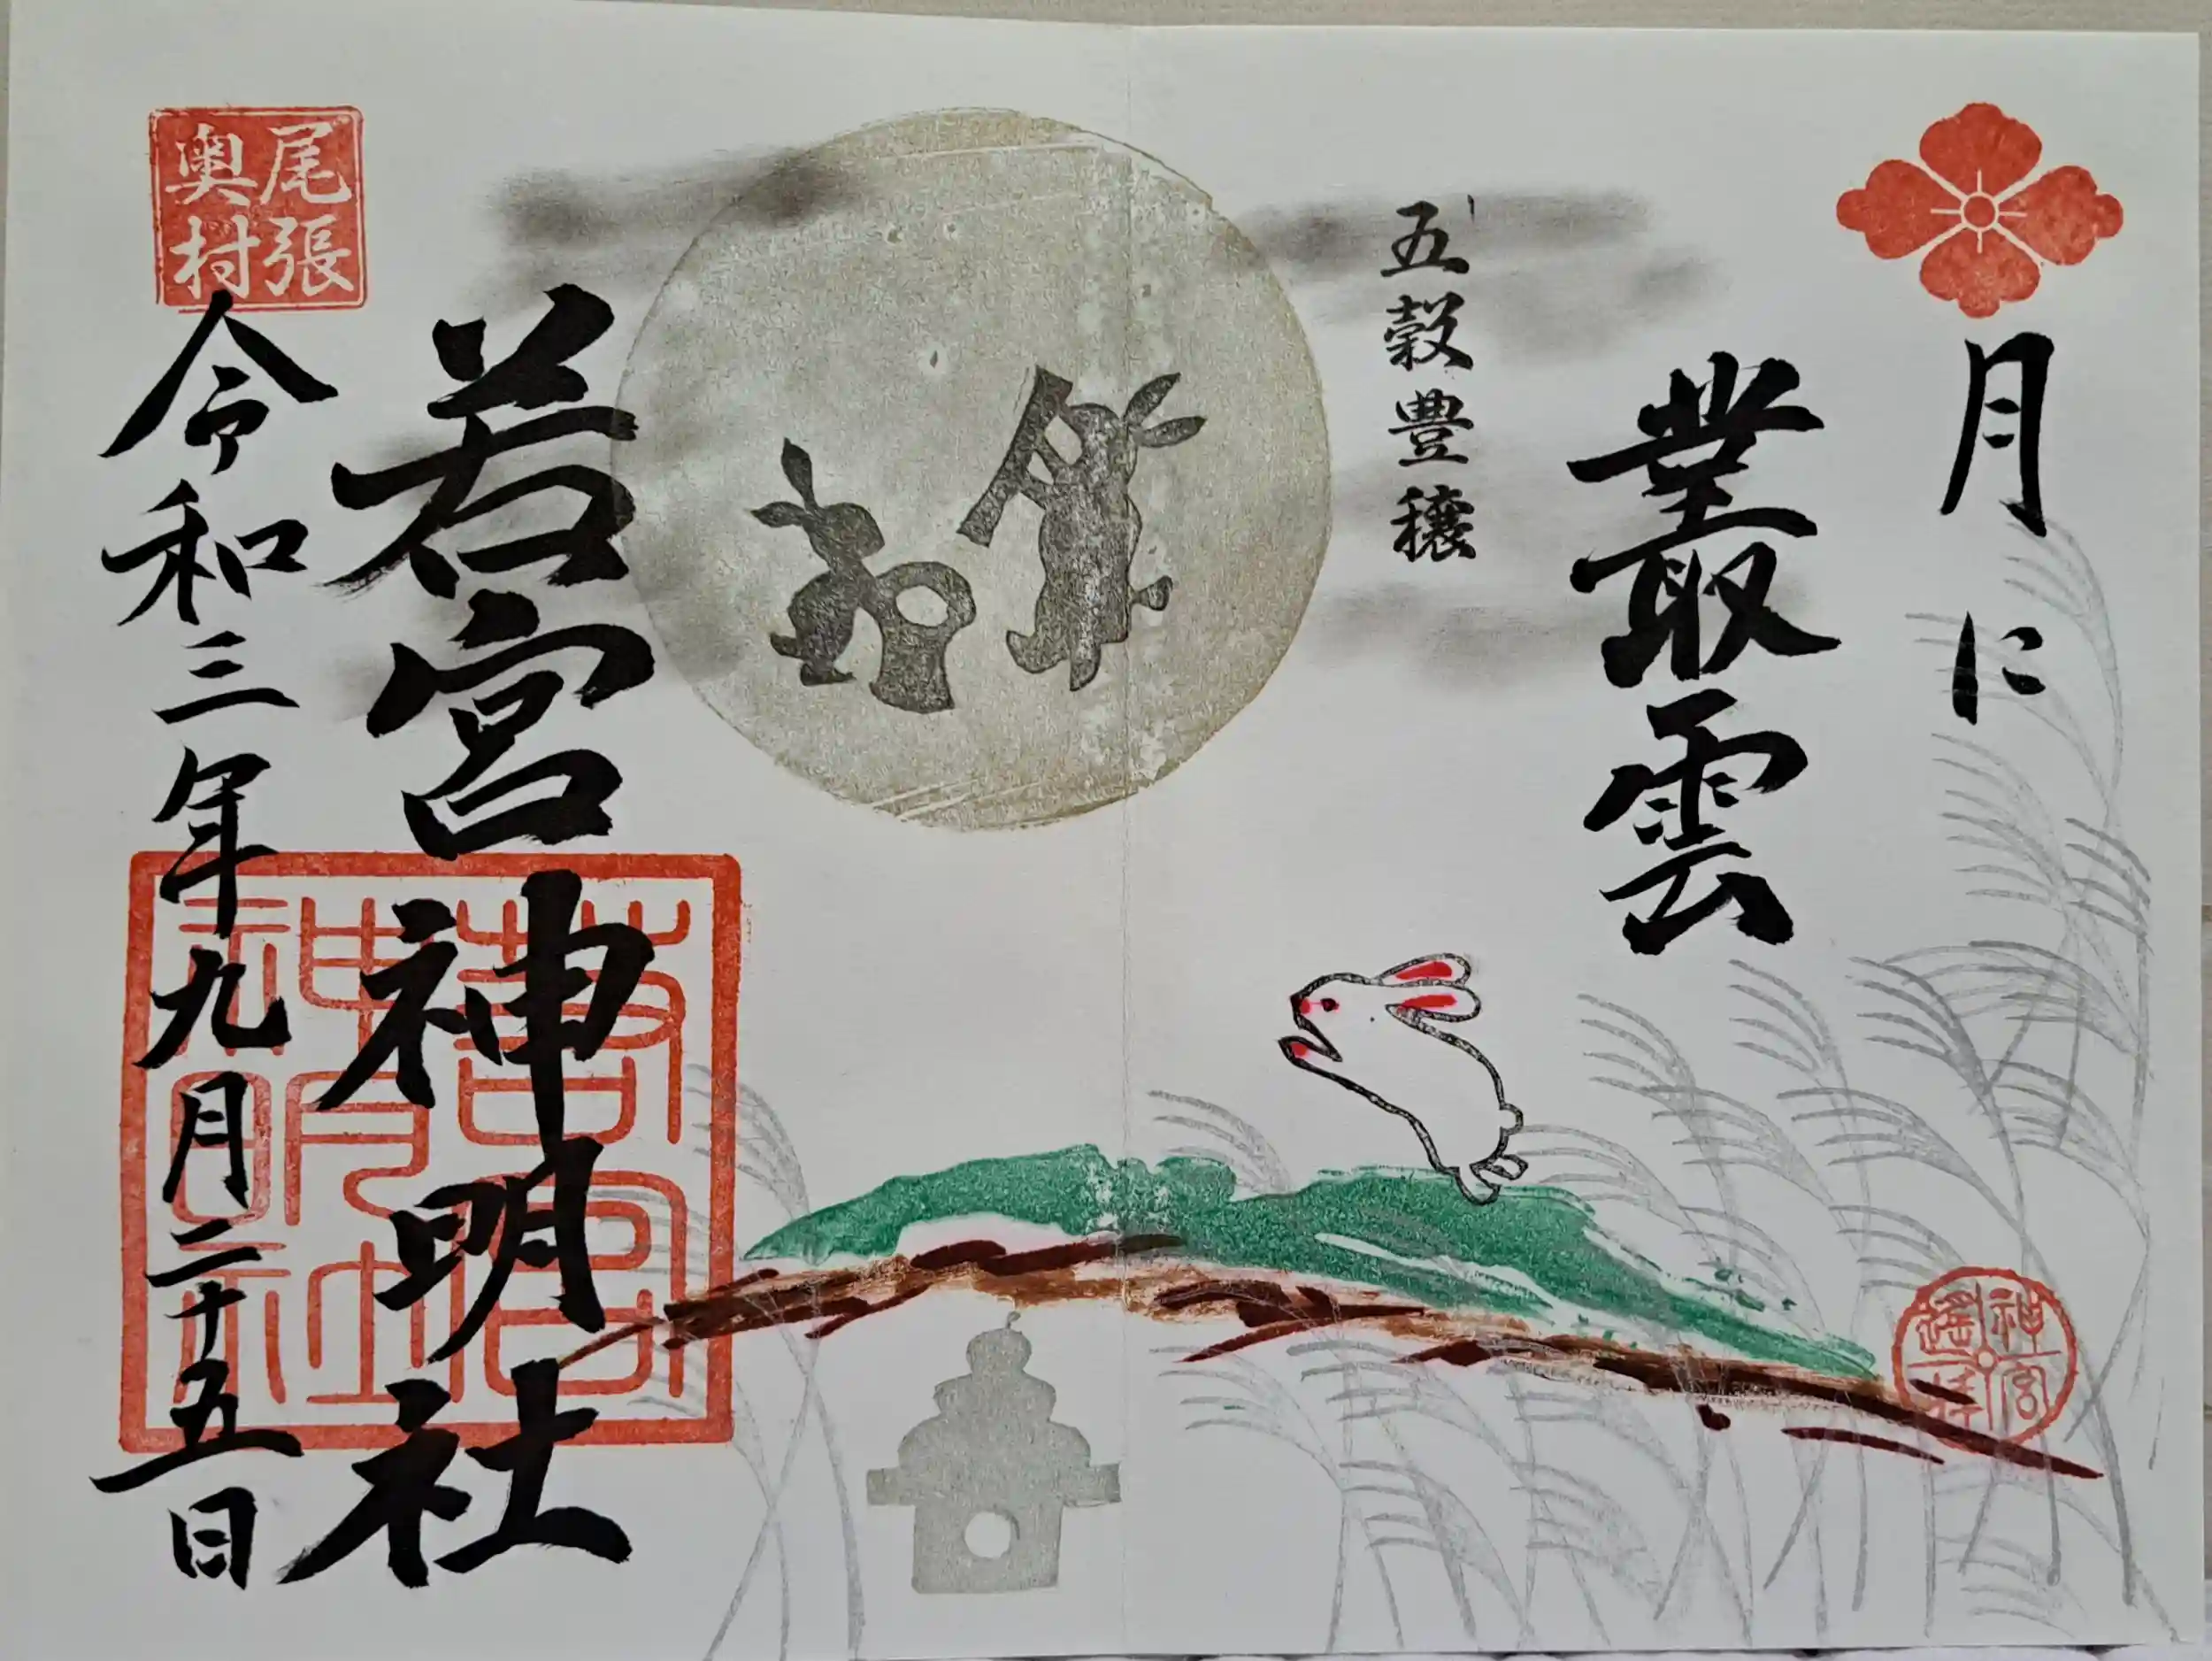 月に
叢雲
五穀豊穣
若宮神明社
令和三年九月二十五日
尾張
奥村
若宮
神明社
神宮
遥拝